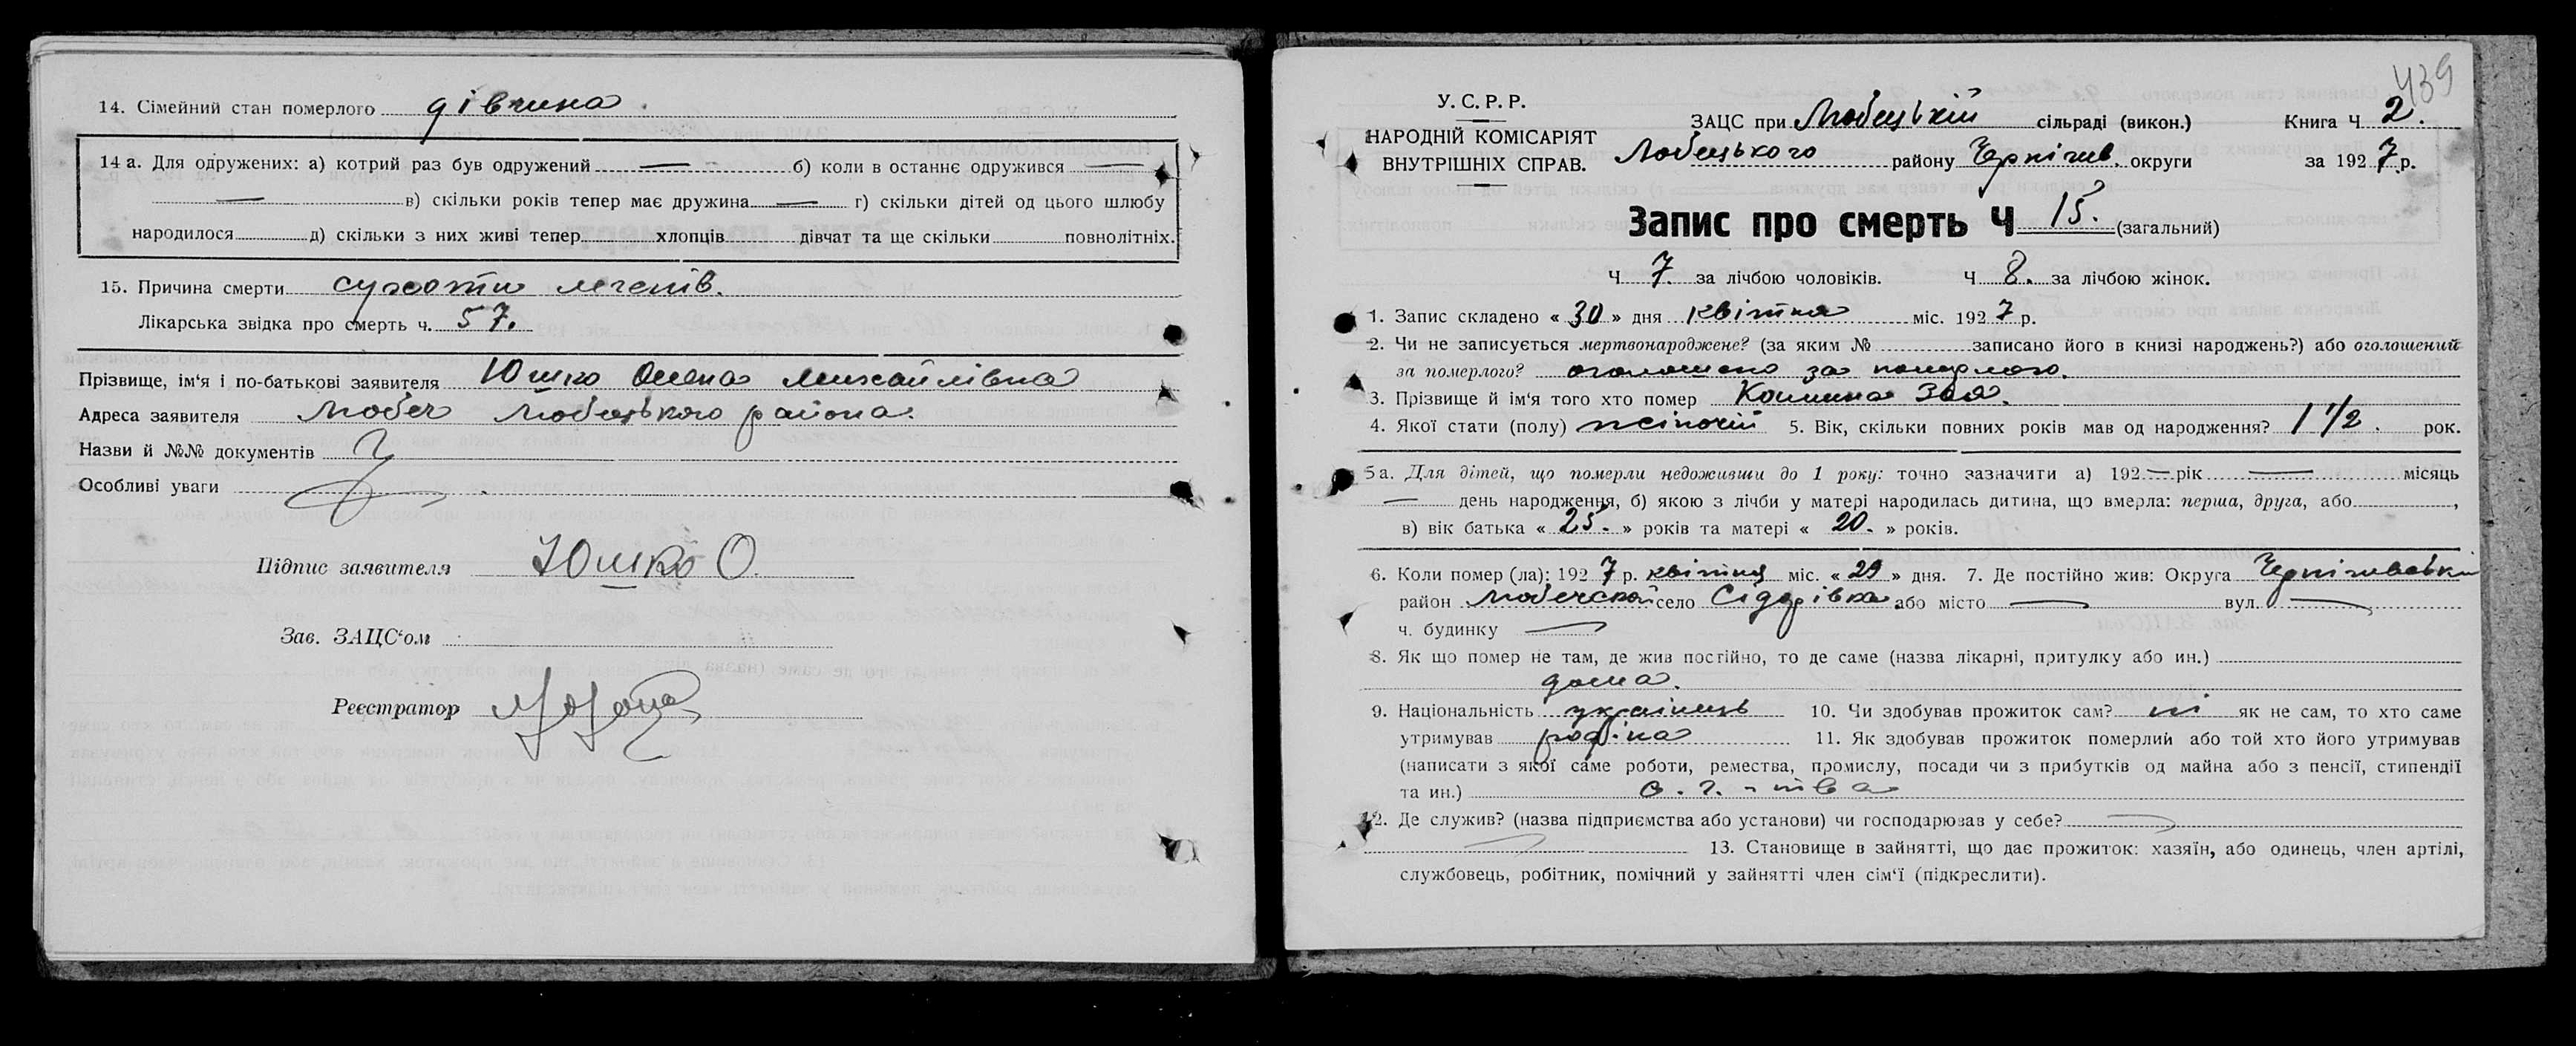 14. Сімейний стан померлого дівчина.
14 а. Для одружених: а) котрий раз був одружений — б) коли в останнє одружився —
— в) скільки років тепер має дружина — г) скільки дітей од цього шлюбу
народилося д) скільки з них живі тепер хлопців дівчат та ще скільки повнолітніх.
15. Причина смерти сухоти легенів.
Лікарська звідка про смерть ч. 57.
Прізвище, ім‘я і по-батькові заявителя Юшко Олена Михайлівна
Адреса заявителя Любеч Любецького района.
Назви й №№ документів
Особливі уваги
Підпис заявителя Юшко О.
Зав. ЗАЦС‘ом
Реєстратор
439
У. С. Р. Р.
НАРОДНІЙ КОМІСАРІЯТ
ВНУТРІШНІХ СПРАВ.
ЗАЦС при Любецькій сільраді (викон.) Книга Ч 2.
Любецького району Чернігив. округи за 1927 р.
Запис про смерть Ч 15. (загальний)
Ч 7 за лічбою чоловіків. Ч 8. за лічбою жінок.
1. Запис складено « 30 » дня квітня міс. 1927 р.
2. Чи не записується мертвонароджене? (за яким № записано його в книзі народжень?) або оголошений
за померлого? оголошено за померлого.
3. Прізвище й ім‘я того хто помер Зоя.
4. Якої стати (полу) жіночій 5. Вік, скільки повних років мав од народження? 1 1/2. рок.
5 а. Для дітей, що померли недоживши до 1 року: точно зазначити а) 192— рік — місяць
— день народження, б) якою з лічби у матері народилась дитина, що вмерла: перша, друга, або ,
в) вік батька « 25. » років та матері « 20. » років.
6. Коли помер (ла): 1927 р. квітня міс. « 29 » дня. 7. Де постійно жив: Округа Чернігивській
район Любечской село Сідорівка або місто — вул. —
ч. будинку —
8. Як що помер не там, де жив постійно, то де саме (назва лікарні, притулку або ин.)
дома.
9. Національність українець 10. Чи здобував прожиток сам? ні як не сам, то хто саме
утримував родіна 11. Як здобував прожиток померлий або той хто його утримував
(написати з якої саме роботи, ремества, промислу, посади чи з прибутків од майна або з пенсії, стипендії
та ин.) с. г. - тва
12. Де служив? (назва підприємства або установи) чи господарював у себе? —
— 13. Становище в зайнятті, що дає прожиток: хазяїн, або одинець, член артілі,
службовець, робітник, помічний у зайнятті член сім‘ї (підкреслити).